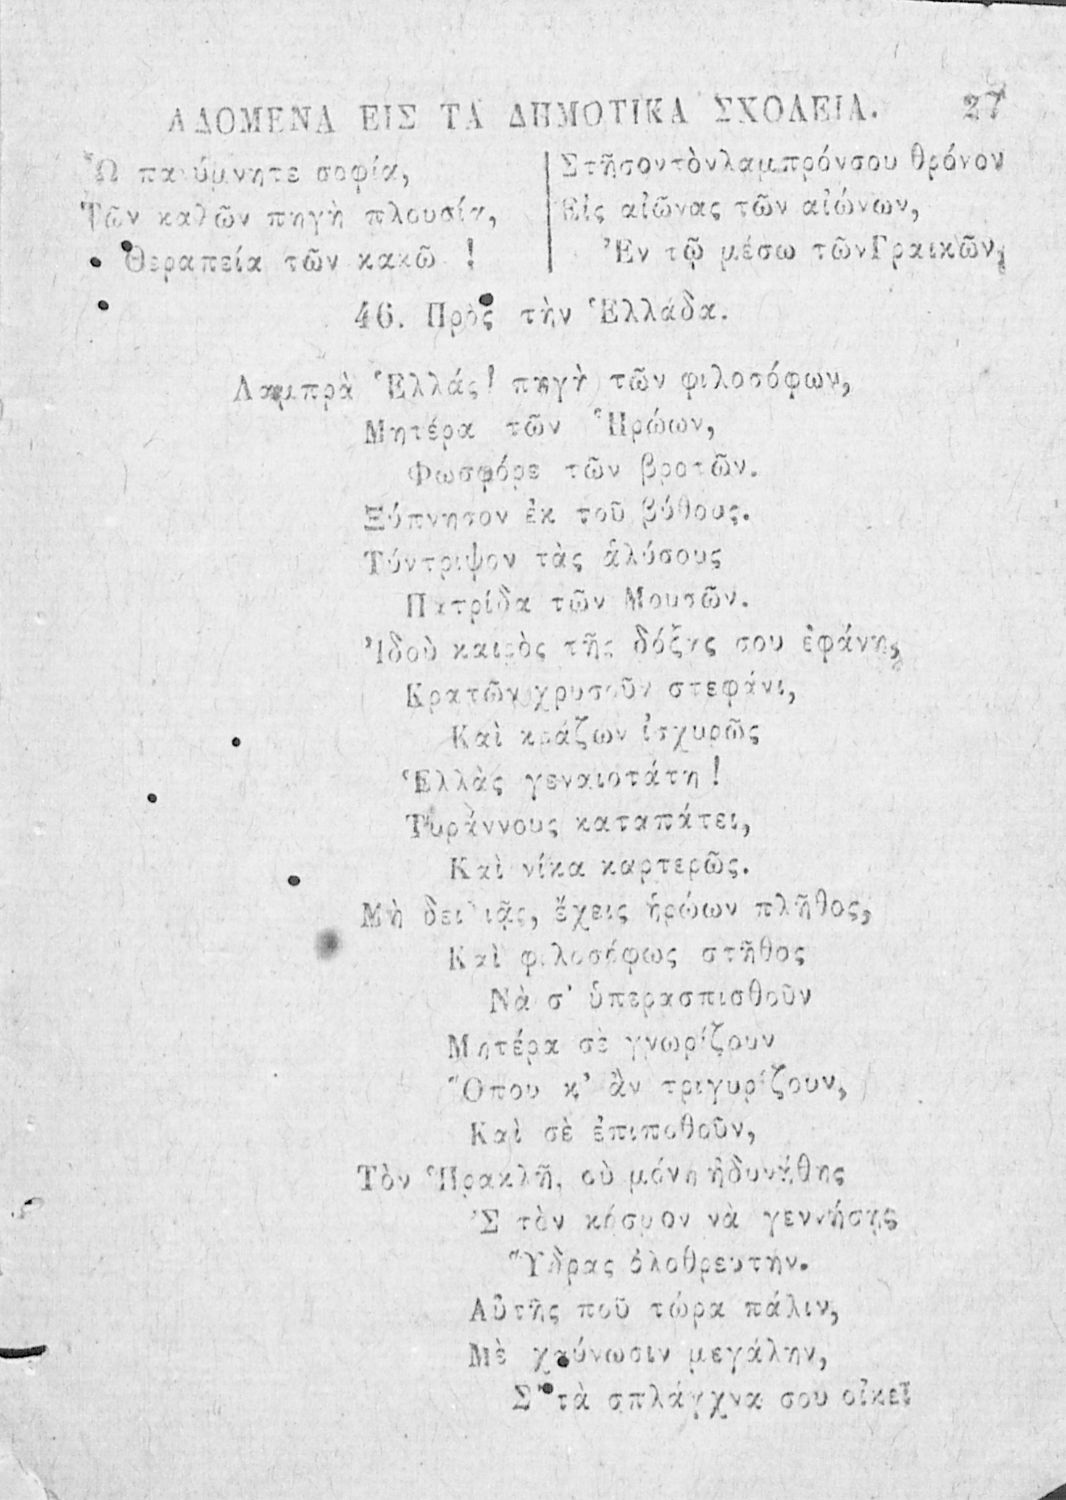 ΑΔΟΜΕΝΑ ΕΙΣ ΤΑ ΔΗΜΟΤΙΚΑ ΣΧΟΛΕΙΑ. 27
Ὦ πανύμνητε σοφία,
Τῶν καλῶν πηγὴ πλουσία,
Θεραπεία τῶν κακῶ !
Στῆσοντὸνλαμπρόνσου θρόνον
Εἰς αἰῶνας τῶν αἰώνων,
Ἐν τῷ μέσω τῶνΓραικῶν,
46. Πρὸς τὴν Ἑλλάδα.
Λαμπρὰ Ἑλλάς! πηγὴ τῶν φιλοσόφων,
Μητέρα τῶν Ἡρώων,
Φωσφόρε τῶν βροτῶν.
Ξύπνησον ἐκ τοῦ βύθους.
Τύντριψον τὰς ἁλύσους
Πατρίδα τῶν Μουσῶν.
Ἰδοὺ καιρὸς τῆς δόξης σου ἐφάνη,
Κρατῶν χρυσοῦν στεφάνι,
Καὶ κράζων ἰσχυρῶς
Ἑλλὰς γεναιοτάτη!
Τυράννους καταπάτει,
Καὶ νίκα καρτερῶς.
Μὴ δειλιᾷς, ἔχεις ἡρώων πλῆθος,
Καὶ φιλοσόφως στῆθος
Νὰ σ' ὑπερασπισθοῦν
Μητέρα σὲ γνωρίζουν
Ὅπου κ' ἂν τριγυρίζουν,
Καὶ σὲ ἐπιποθοῦν,
Τὸν Ἡρακλῆ, οὺ μόνη ἠδυνήθης
Ἐ τὸν κόσμον νὰ γεννήσῃς
Ὕδρας ὀλοθρευτήν.
Αὐτῆς ποῦ τώρα πάλιν,
Μὲ χαύνωσιν μεγάλην,
Σ' τὰ σπλάγχνα σου οἰκεῖ